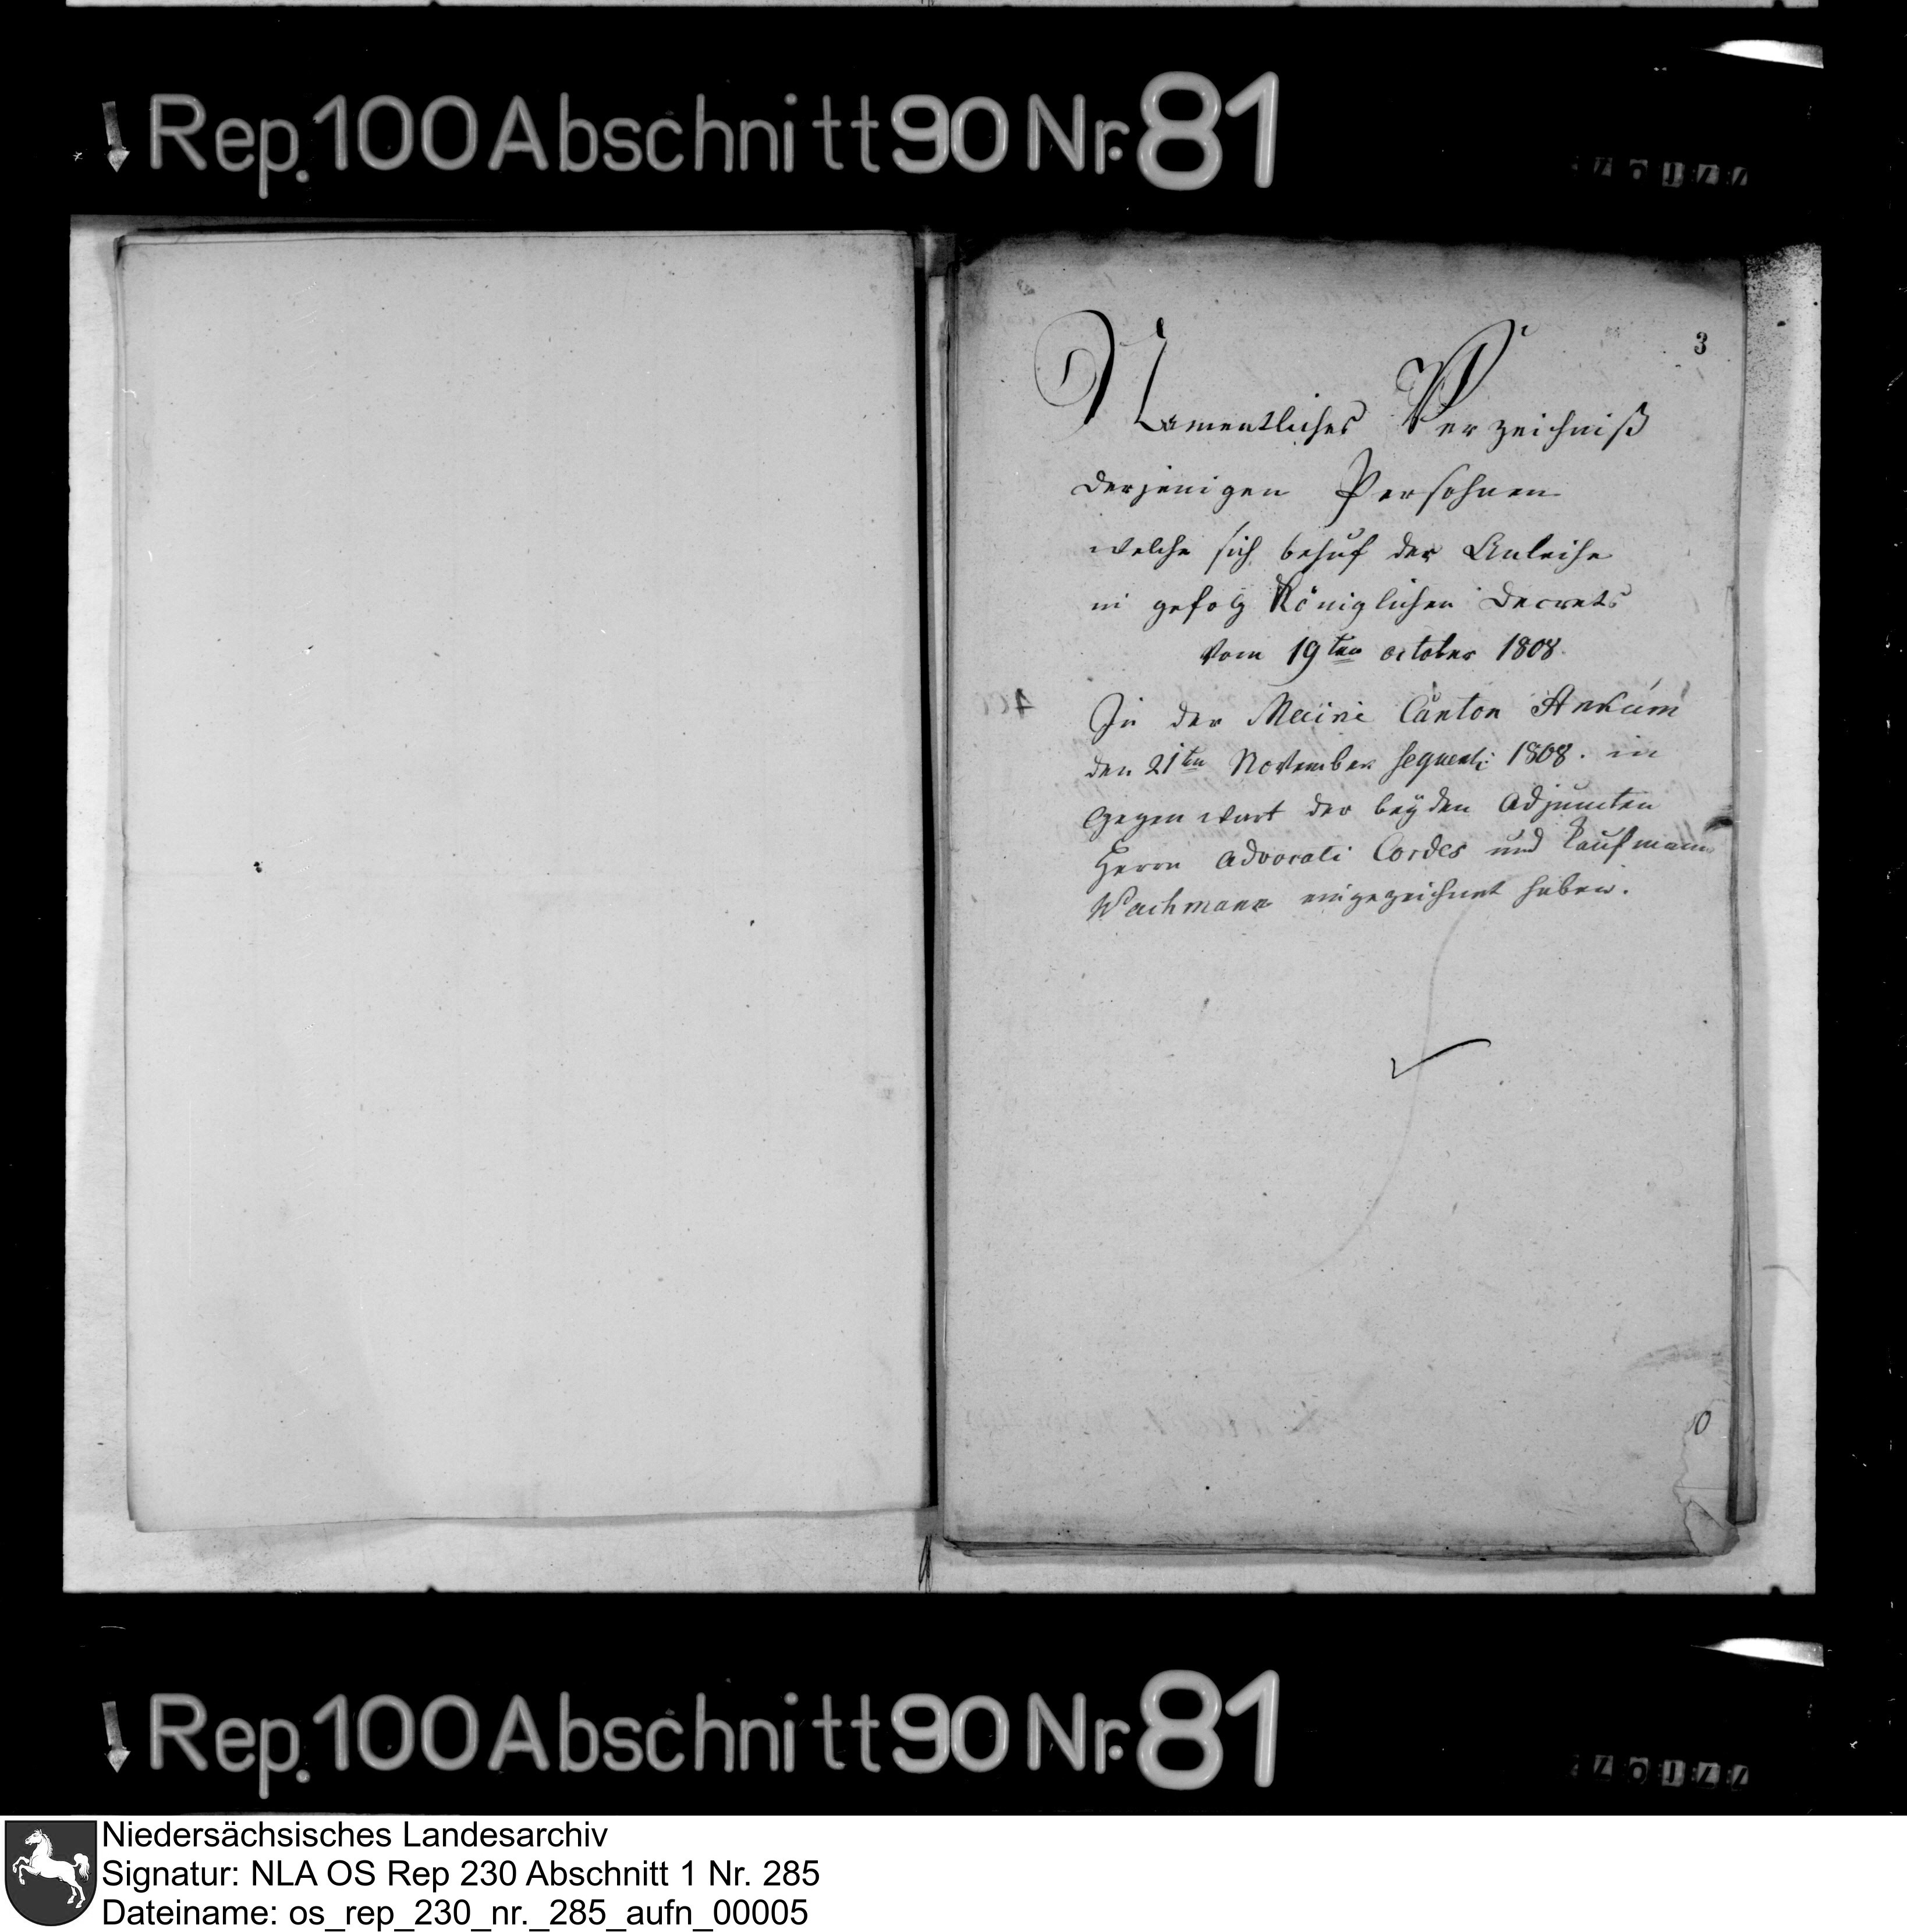 Rep. 100 Abschnitt 90 Nr. 81
3
Namentliches Verzeichniß
derjenigen Persohnen
welche sich behuf der Anleihe
in gefolg Königlichen Decrets
vom 19ten october 1808.
In der Mairie Canton Ankum
den 21ten November sequenti 1808. in
Gegenwart der beÿden Adjuncten
Herrn Advocati Cordes und Kaufmann
Wachmann eingezeichnet haben.
Rep. 100 Abschnitt 90 Nr. 81
Niedersächsisches Landesarchiv
Signatur: NLA OS Rep 230 Abschnitt 1 Nr. 285
Dateiname: os_rep_230_nr._285_aufn_00005